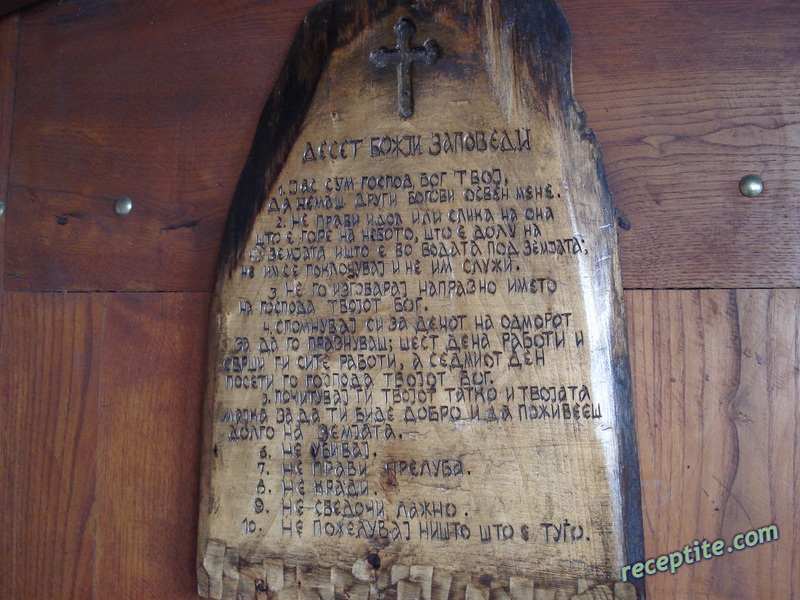 ДЕСЕТ БОЖЈИ ЗАПОВЕДИ
1. ЈАС СУМ ГОСПОД БОГ ТВОЈ,
ДА НЕМАШ ДРУГИ БОГОВИ ОСВЕН МЕНЕ.
2. НЕ ПРАВИ ИДОЛ ИЛИ СЛИКА НА ОНА
ШТО Е ГОРЕ НА НЕБОТО, ШТО Е ДОЛУ НА
ЗЕМЈАТА И ШТО Е ВО ВОДАТА ПОД ЗЕМЈАТА;
НЕ ИМ СЕ ПОКЛОНУВАЈ И НЕ ИМ СЛУЖИ.
3. НЕ ГО ИЗГОВАРАЈ НАПРАЗНО ИМЕТО
НА ГОСПОДА ТВОЈОТ БОГ.
4. СПОМНУВАЈ СИ ЗА ДЕНОТ НА ОДМОРОТ
ЗА ДА ГО ПРАЗНУВАШ; ШЕСТ ДЕНА РАБОТИ И
СВРШИ ГИ СИТЕ РАБОТИ, А СЕДМИОТ ДЕН
ПОСЕТИ ГО ГОСПОДА ТВОЈОТ БОГ.
5. ПОЧИТУВАЈ ГИ ТВОЈОТ ТАТКО И ТВОЈАТА
МАЈКА ЗА ДА ТИ БИДЕ ДОБРО И ДА ПОЖИВЕЕШ
ДОЛГО НА ЗЕМЈАТА.
6. НЕ УБИВАЈ.
7. НЕ ПРАВИ ПРЕЛУБА.
8. НЕ КРАДИ.
9. НЕ СВЕДОЧИ ЛАЖНО.
10. НЕ ПОЖЕЛУВАЈ НИШТО ШТО Е ТУЃО.
receptite.com